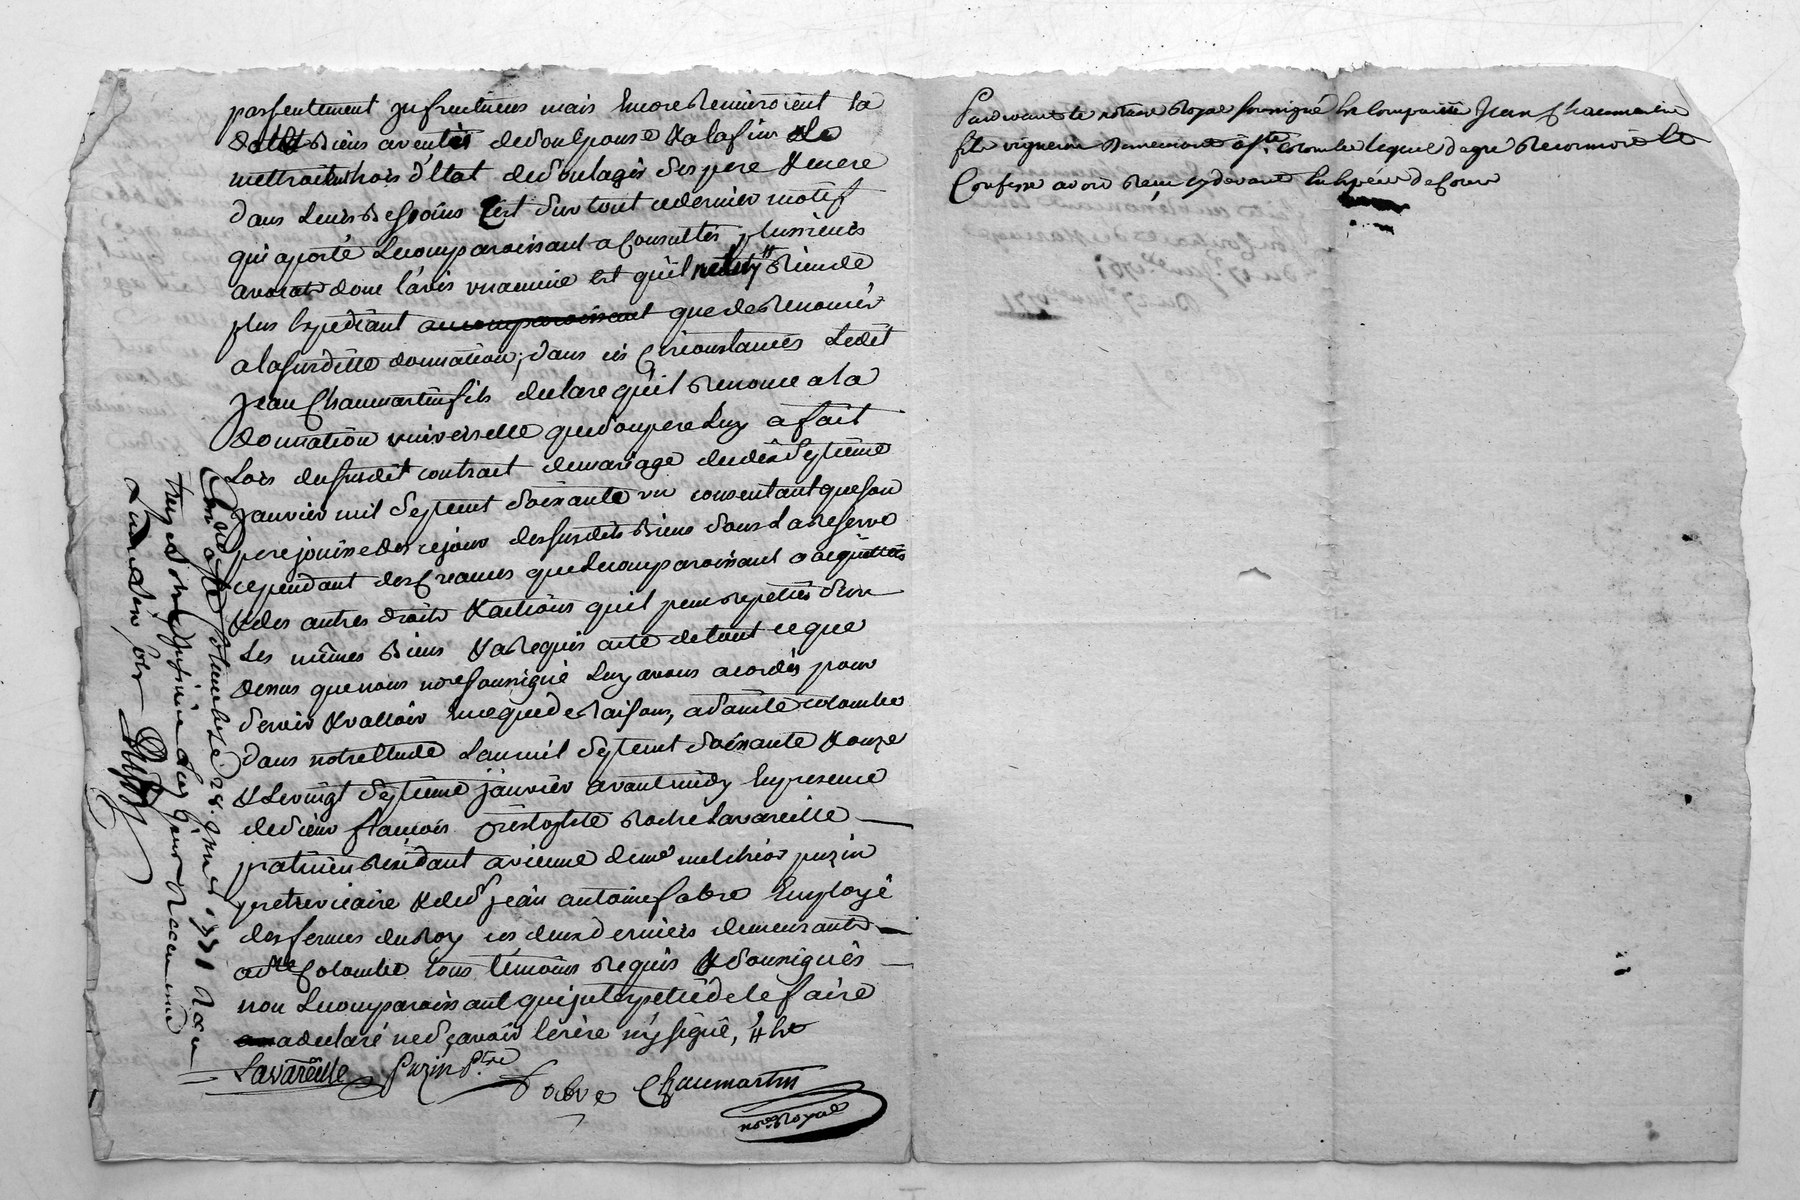 parfentement jnfructueus mais Encore Renieroient la
Biens aventès de son Epouse & a la fin Le
mettroit hors d'Etat de soulager ses pere & mere
dans Leurs Besoins C'est surtout ce dernier motif
qui a porté Le comparoissant a Consulter plusieurs
avocats donc l'avis unanime est qu'il Rien de
plus Expediant accomparoissant que de Renoncer
a la susditte donnation, dans ces Circonstances Ledit
Jean Chaumartin fils declare qu'il Renonce a la
donnation universelle que son pere Luy a fait
Lors du susdit contract de mariage du dix Septieme
janvier mil Septcent Soixante un consentant que son
pere jouisse des ce jour des susdits Biens sous La Reserve
cependant des Creances que Le comparoissant a acquittés
& des autres droits & actions qu'il peut Repetter sur
Les mêmes Biens & a Requis acte de tout ce que
dessus que nous not.re soussigné Luy avons acordés pour
servir & valloir Ence que de Raison, a Sainte Colombe
dans notre Etude L'an mil Septcent Soixante & onze
& Le vingt Septieme janvier avant midy En presence
de Sieur françois Roche Lavareille
praticien Residant a vienne de m.re melchior puzin
pretre vicaire & de s.r jean antoine fabre Employé
des fermes du Roy ces deux derniers demeurants
a S.te Colombe tous témoins Requis & soussignés
non Le comparoissant qui jnterpellé de le faire
a declaré ne sçavoir Ecrire n'y signé,
Lavareille Puzin P.tre
fabre Chaumartin
no.re Royal
Con.lé a S.te Colombe Le 28. janv.r 1771 Reçu
treize sols
Pardevant le notaire Royal soussigné Est Comparû Jean Chaumartin
fils vigneron demeurant à S.te Colombe lequel de gré Reconnoit Et
Confesse avoir Reçu cy devant En Espéces de Cours